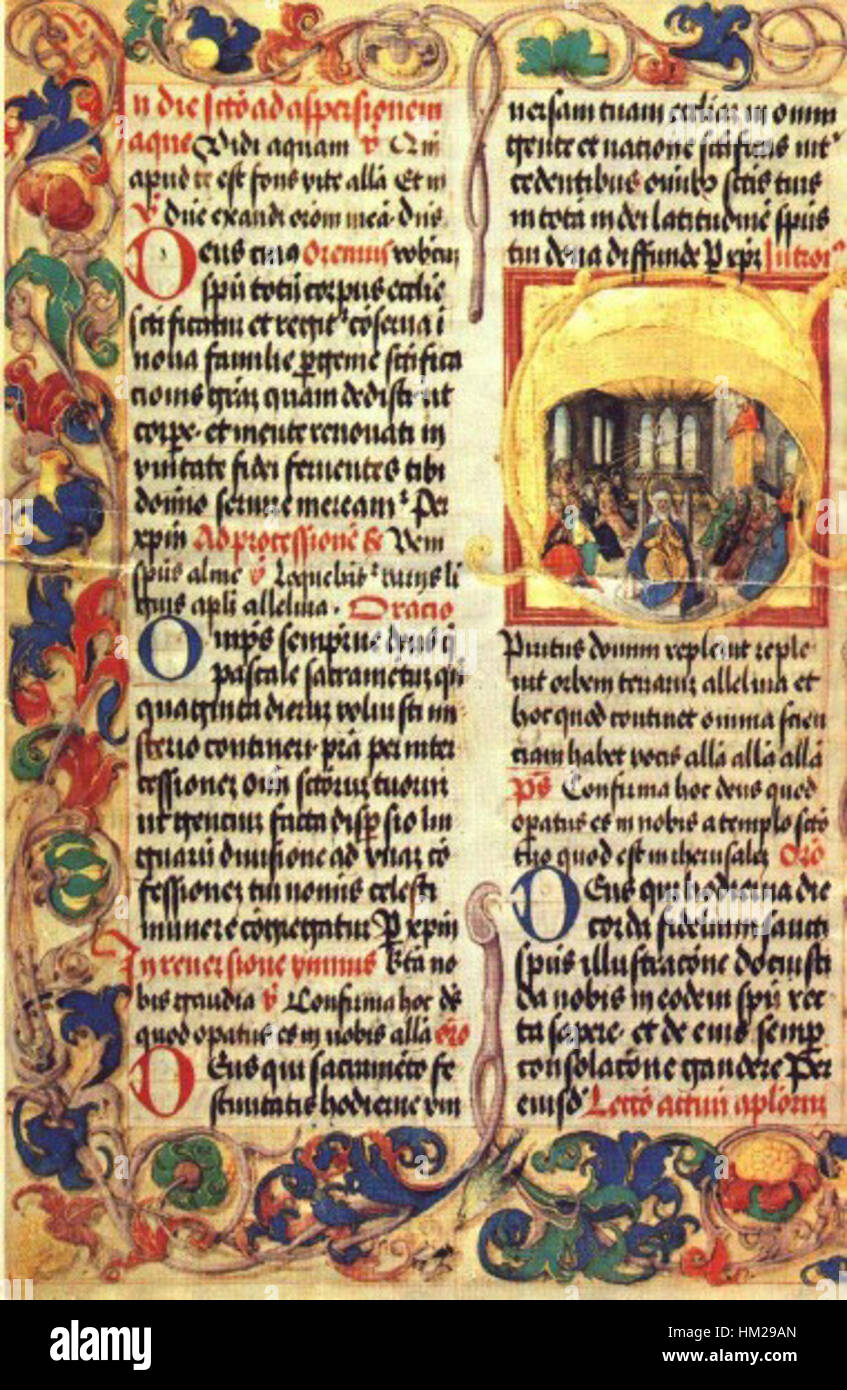 In die scto ad aspersionem
aque Vidi aquam V Qm
apud te est fons vite alla Et in
V Dne exaudi orom mea. Dns
Deus cuius Oremus vobiscu
spu totu corpus ecclie
scificatur et regit coserua i
noua familie pgeme scifica
tionis graz quam dedisti ut
corpe. et mente renouati in
vnitate fidei feruentes tibi
domino seruire mereamr Per
xpm Ad processione & Veni
spus alme V Loquebatr varijs li
guis apli alleluia. Oracio
Omps sempitne deus q
pascale sacrametuz qui
quaginta dieruz voluisti mi
sterio contineri. pra per inter
cessionez oim sctoruz tuoruz
ut genciuz facta disp sio lin
guaru diuisione ad vnaz co
fessionez tui nomis celesti
munere cogregatur P xpm
In reuersione ymnus Bta no
bis gaudia V Confirma hoc ds
quod opatus es in nobis alla oro
Deus qui sacrameto fe
stiuitatis hodierne vni
uersam tuam eccliaz in omni
gente et natione scificas int
cedentibus omibz sctis tuis
in tota mdi latitudine spus
tui dona diffunde P xpz Introit
Spiritus domini repleuit reple
uit orbem terraruz alleluia et
hoc quod continet omnia scien
ciam habet vocis alla alla alla
ps Confirma hoc deus quod
opatus es in nobis a templo scto
tuo quod est in iherusalez Oro
Deus qui hodierna die
corda fidelium sancti
spus illustracone docuisti
da nobis in eodem spu rec
ta sapere. et de eius semp
consolacone gaudere Per
eiusd Lectio actuu aploruz
alamy
HM29AN
www.alamy.com